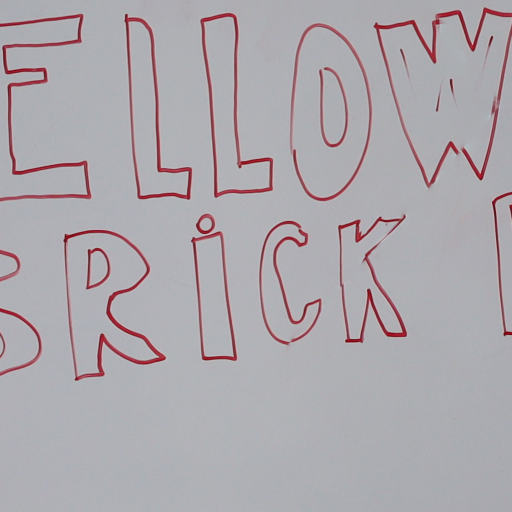 ELLOW
BRiCK